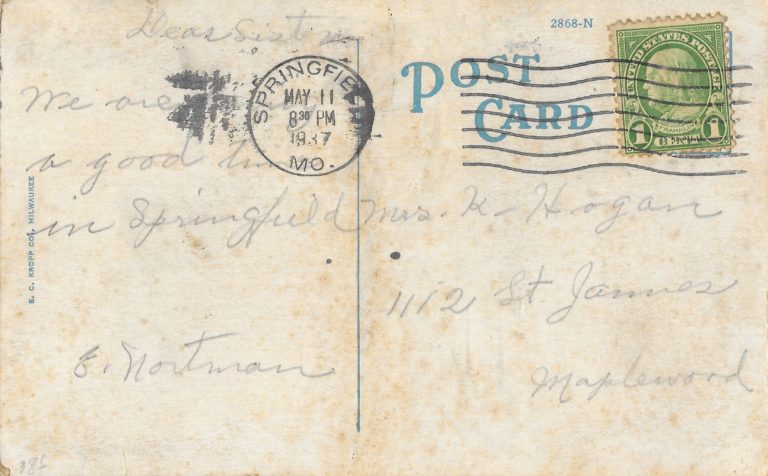 Dear Sister
We are
a good time
in Springfield
E. Nortman
E. C. KROPP CO., MILWAUKEE
SPRINGFIELD
MAY 11
8 30 PM
1937
MO.
2868-N
POST
CARD
UNITED STATES POSTAGE
FRANKLIN
1 CENT 1
Mrs. K. Hogan
1112 St James
Maplewood